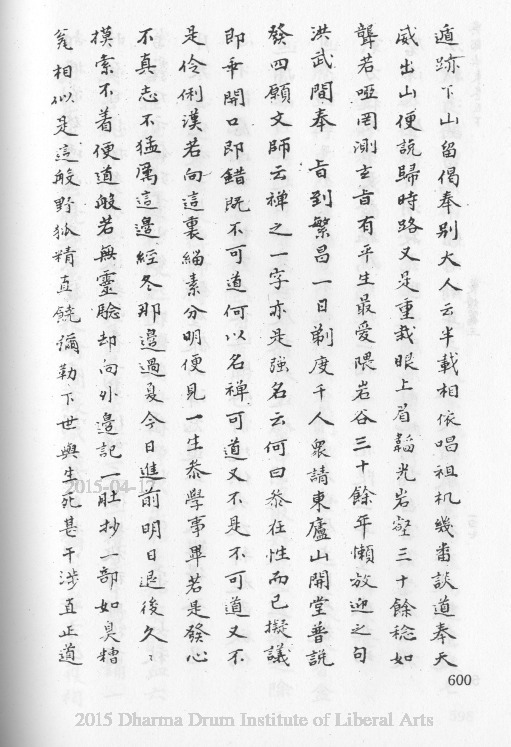 遁跡下山留偈奉別大人云半載相依唱祖机幾畨談道奉天
威出山便説歸時路又是重栽眼上眉韜光岩壑三十餘稔如
聾若啞罔測玄旨有平生最愛隈岩谷三十餘年懶放迎之句
洪武間奉旨到繁昌一日剃度千人衆請東廬山開堂普説
發四願文師云禅之一字亦是強名云何曰叅在性而已擬議
即乖開口即錯既不可道何以名禅可道又不是不可道又不
是伶俐漢若向這裏緇素分明便見一生叅學事畢若是發心
不真志不猛厲這邊經冬那邊過夏今日進前明日退後久〻
摸索不着便道般若無靈驗却向外邊記一肚抄一部如臭糟
瓮相似是這般野狐精直饒彌勒下世與生死甚干涉直正道
600
2015-04-17
2015 Dharma Drum Institute of Liberal Arts